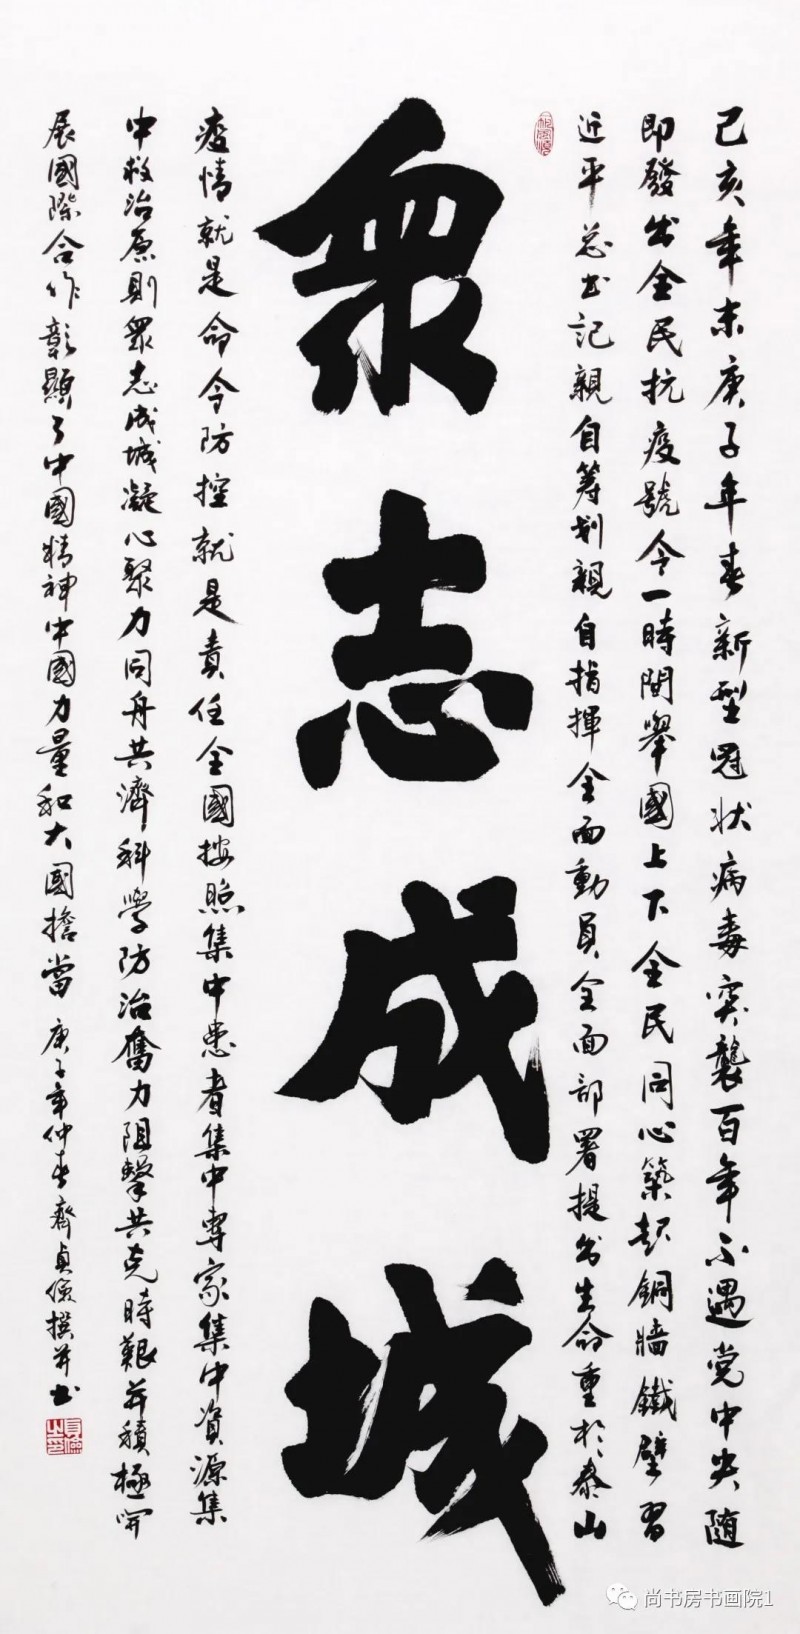 己亥年末庚子年春新型冠狀病毒突襲百年不遇党中央随
即發出全民抗疫號令一時間舉國上下全民同心築起銅牆鐵壁習
近平总书記親自筹划親自指揮全面動員全面部署提出生命重於泰山
衆志成城
疫情就是命令防控就是責任全國按照集中患者集中專家集中資源集
中救治原則衆志成城凝心聚力同舟共濟科學防治奮力阻擊共克時艱并積極開
展國際合作彰顯了中國精神中國力量和大國擔當 庚子年仲春齊貞儉撰并书
尚书房书画院1